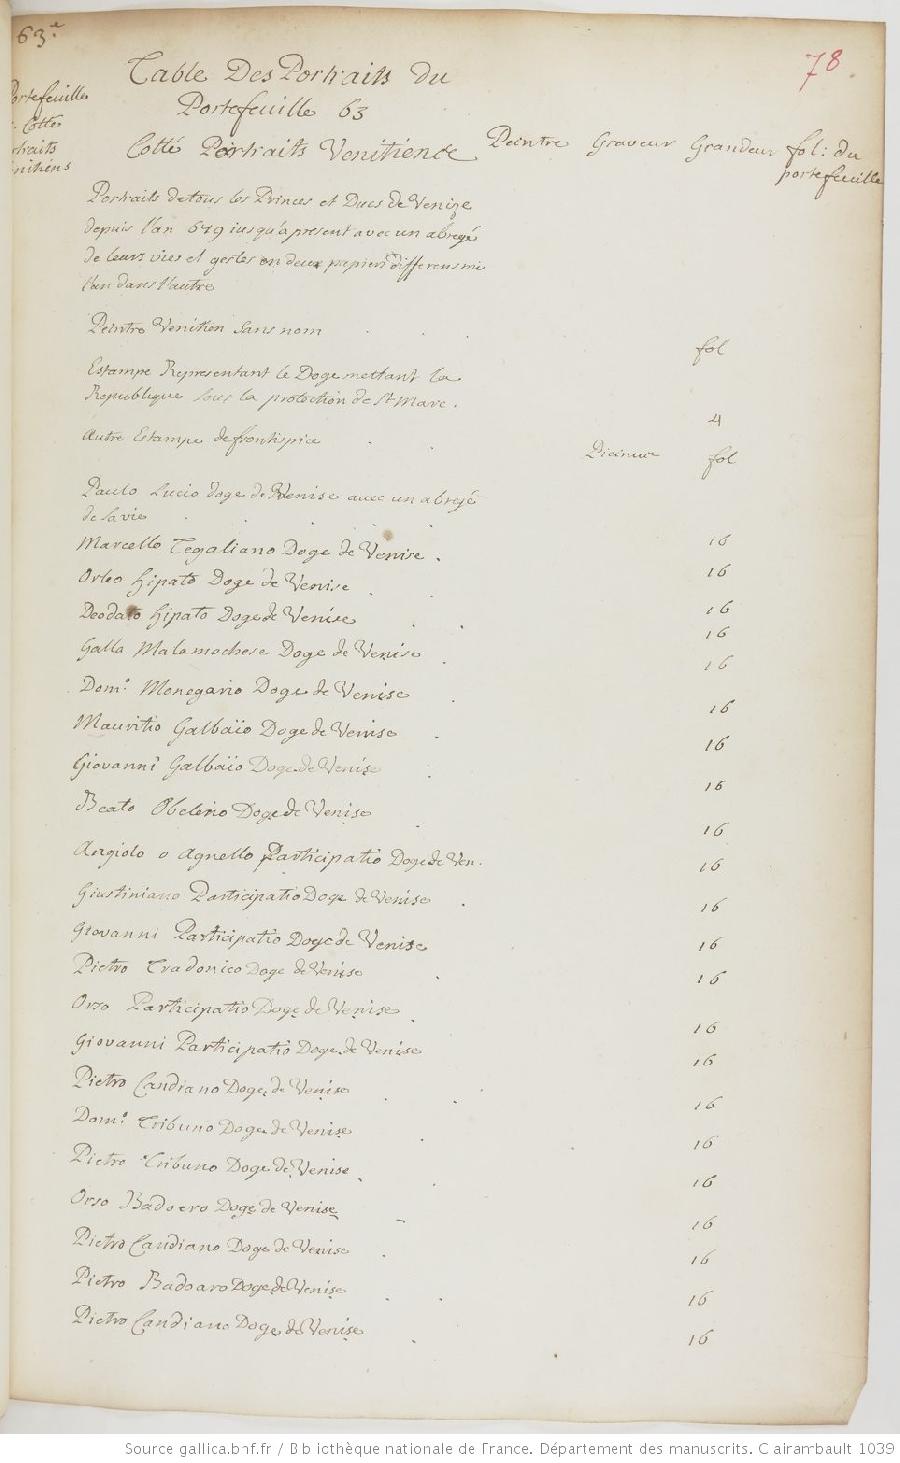 63.e
78
Portefeuille
Cotte
Portraits
Table Des Portraits du
Portefeuille 63
Cotté Portraits Venitiens
Peintre Graveur Grandeur fol: du
portefeuille
Portraits de tous les Princes et Ducs de Venize
depuis l'an 679 iusqu'a present avec un abregé
de leurs vies et gestes en deux papiers differens mis
l'un dans l'autre
Peintre Venitien sans nom fol
Estampe Representant le Doge mettant la
Republique sous la protection de St Marc. 4
Autre Estampe de frontispice fol
Paulo Lucio doge de Venise avec un abregé
de la vie 16
Marcello Tegaliano Doge de Venise. 16
Orleo Hipato Doge de Venise 16
Deodato Hipato Doge de Venise 16
Galla Malamochese Doge de Venise 16
Dom.o Monegario Doge de Venise 16
Mauritio Galbaïo Doge de Venise 16
Giovanni Galbaïo Doge de Venise 16
Beato Obelerio Doge de Venise 16
Angiolo o Agnello Participatio Doge de Ven. 16
Giustiniano Participatio Doge de Venise 16
Giovanni Participatio Doge de Venise 16
Pietro Tradonico Doge de Venise 16
Orso Participatio Doge de Venise 16
Giovanni Participatio Doge de Venise 16
Pietro Candiano Doge de Venise 16
Dom.o Tribuno Doge de Venise 16
Pietro Tribuno Doge de Venise 16
Orso Badoero Doge de Venise 16
Pietro Candiano Doge de Venise 16
Pietro Badoaro Doge de Venise 16
Pietro Candiano Doge de Venise 16
Source gallica.bnf.fr / Bibliothèque nationale de France. Département des manuscrits. Clairambault 1039